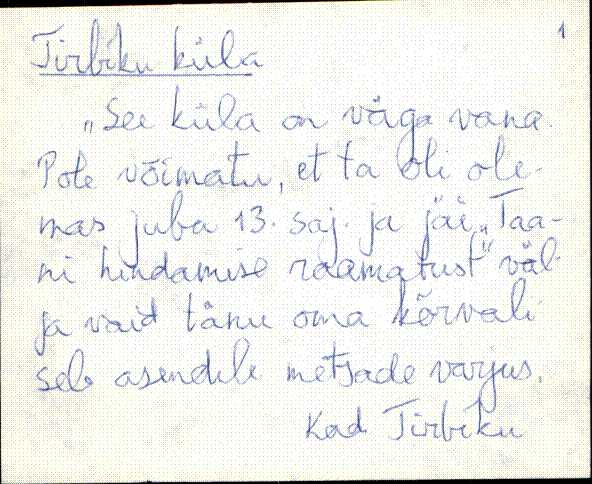 1
Tirbiku küla
„See küla on väga vana.
Pole võimatu, et ta oli ole-
mas juba 13. saj. ja jäi „Taa-
ni hindamise raamatust“ väl-
ja vaid tänu oma kõrvali-
sele asendile metsade varjus.
Kad Tirbiku